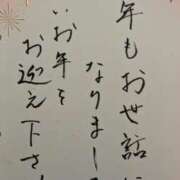 年もお世話に
なりまし
いお年を
お迎え下さ